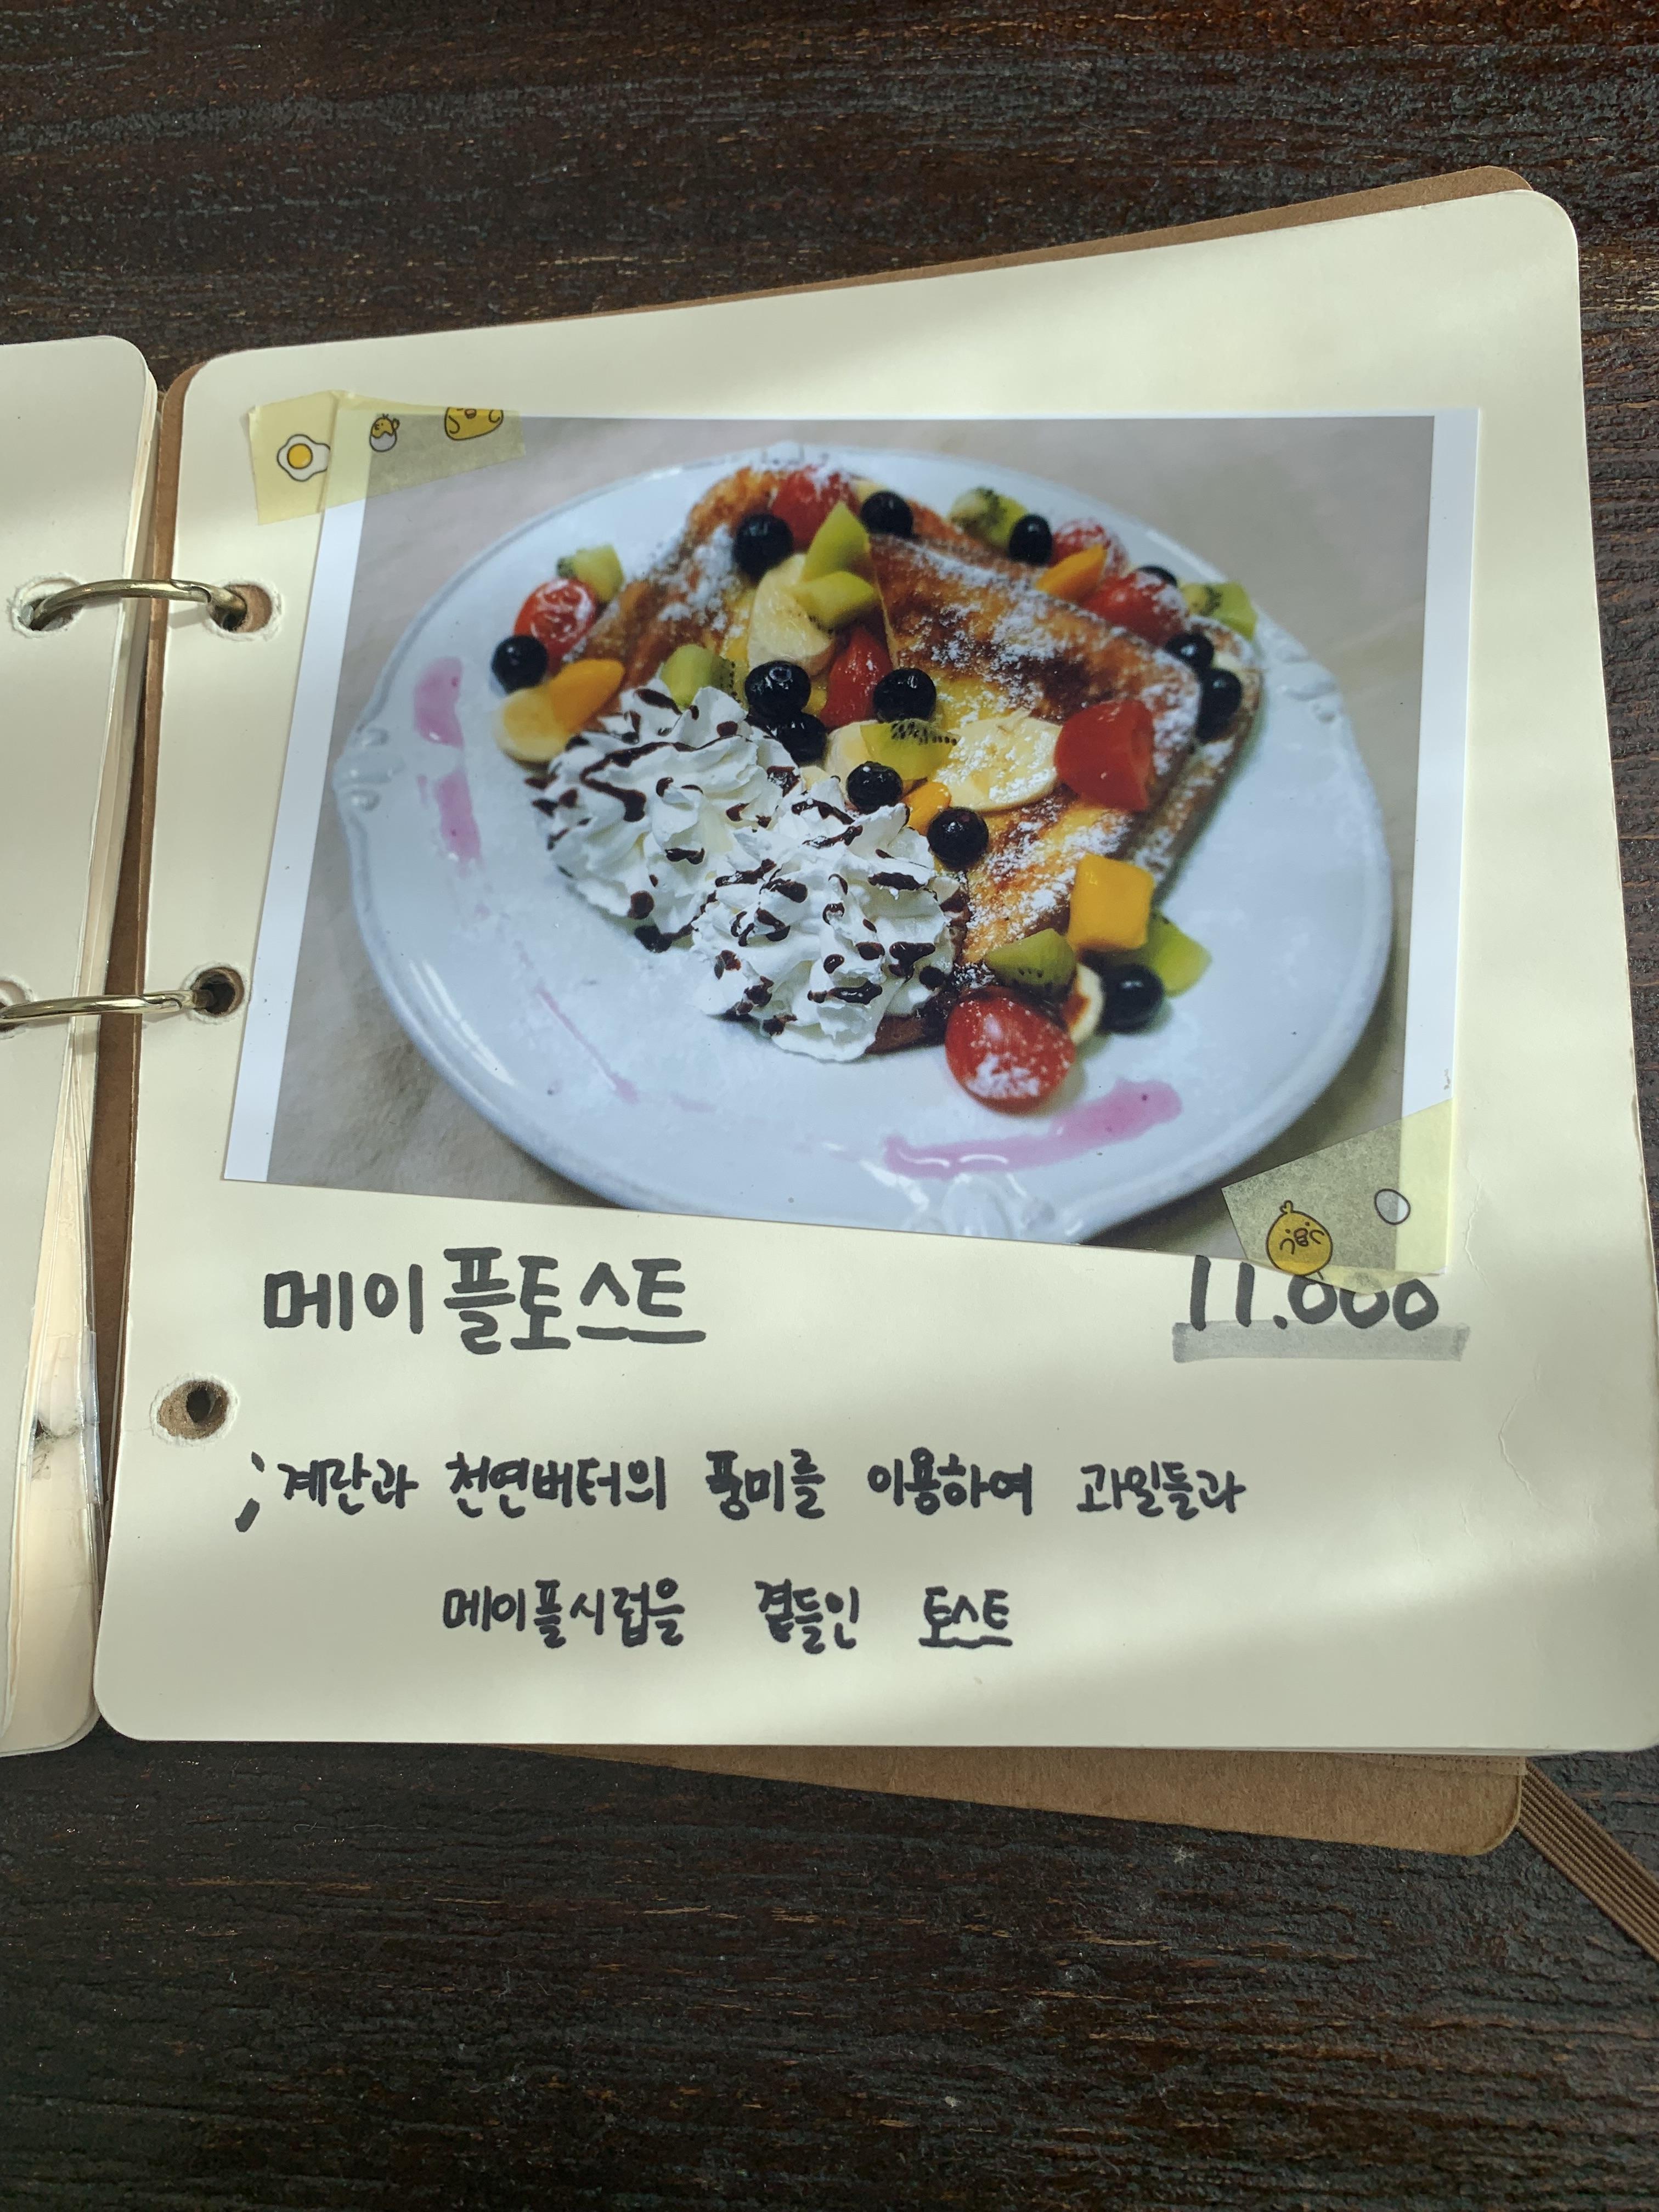 메이플토스트
11.000
; 계란과 천연버터의 풍미를 이용하여 과일들과
메이플시럽을 곁들인 토스트